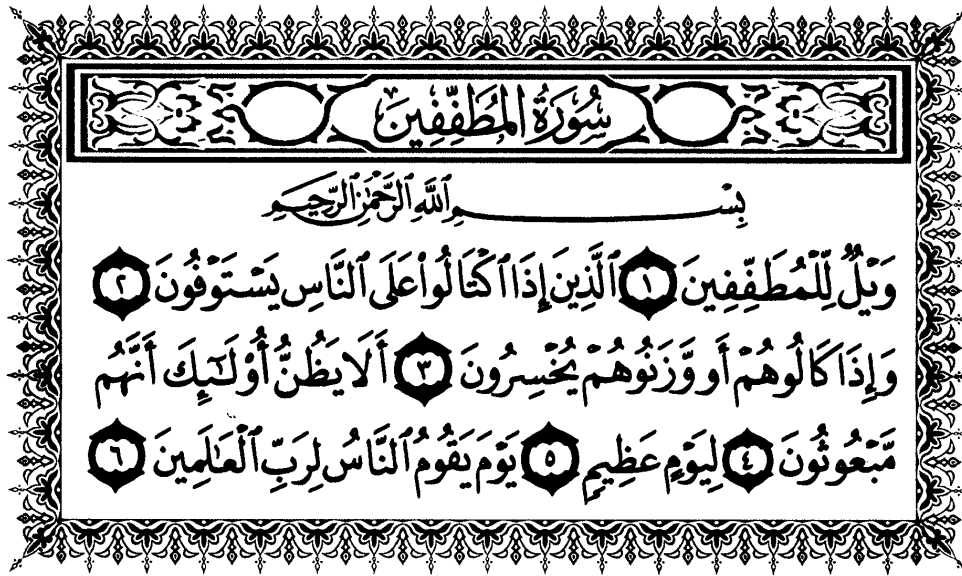 سُورَةُ المُطَفِّفِينَ
بِسْمِ ٱللَّهِ ٱلرَّحْمَٰنِ ٱلرَّحِيمِ
وَيْلٌ لِّلْمُطَفِّفِينَ ١ ٱلَّذِينَ إِذَا ٱكْتَالُوا۟ عَلَى ٱلنَّاسِ يَسْتَوْفُونَ ٢
وَإِذَا كَالُوهُمْ أَو وَّزَنُوهُمْ يُخْسِرُونَ ٣ أَلَا يَظُنُّ أُو۟لَٰٓئِكَ أَنَّهُم
مَّبْعُوثُونَ ٤ لِيَوْمٍ عَظِيمٍ ٥ يَوْمَ يَقُومُ ٱلنَّاسُ لِرَبِّ ٱلْعَٰلَمِينَ ٦